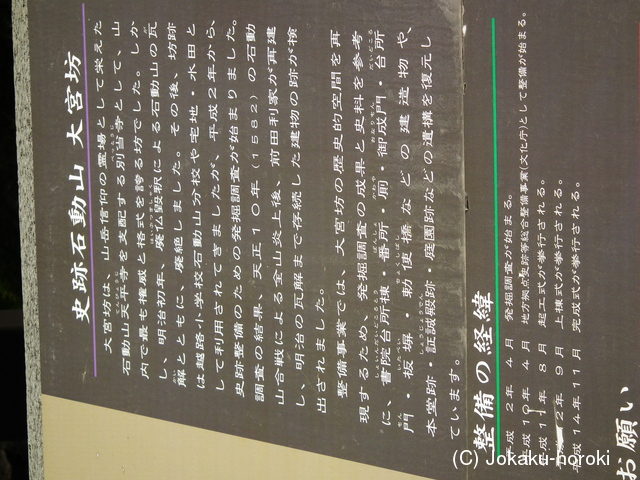 史跡石動山 大宮坊
大宮坊は、山岳信仰の霊場として栄えた
石動山天平寺を支配する別当寺として、山
内で最も権威と格式を誇る坊でした。しか
し、明治初年、廃仏毀釈による石動山の瓦
解とともに、廃絶しました。その後、坊跡
は越路小学校石動山分校や宅地・水田と
して利用されてきましたが、平成2年から、
史跡整備のための発掘調査が始まりました。
調査の結果、天正10年(1582)の石動
山合戦による全山炎上後、前田利家が再建
し、明治の瓦解まで存続した建物の跡が検
出されました。
整備事業では、大宮坊の歴史的空間を再
現するため、発掘調査の成果と史料を参考
に、書院台所棟・番所・厠・御成門・台所
門・板塀・勅使橋などの建造物や、
本堂跡・証誠殿跡・庭園跡などの遺構を復元し
ています。
整備の経緯
平成 2年 4月 発掘調査が始まる。
平成10年 4月 地方拠点史跡等総合整備事業(文化庁)として整備が始まる。
平成11年 8月 起工式が挙行される。
平成12年 9月 上棟式が挙行される。
平成14年11月 完成式が挙行される。
お願い
(C) Jokaku-horoki